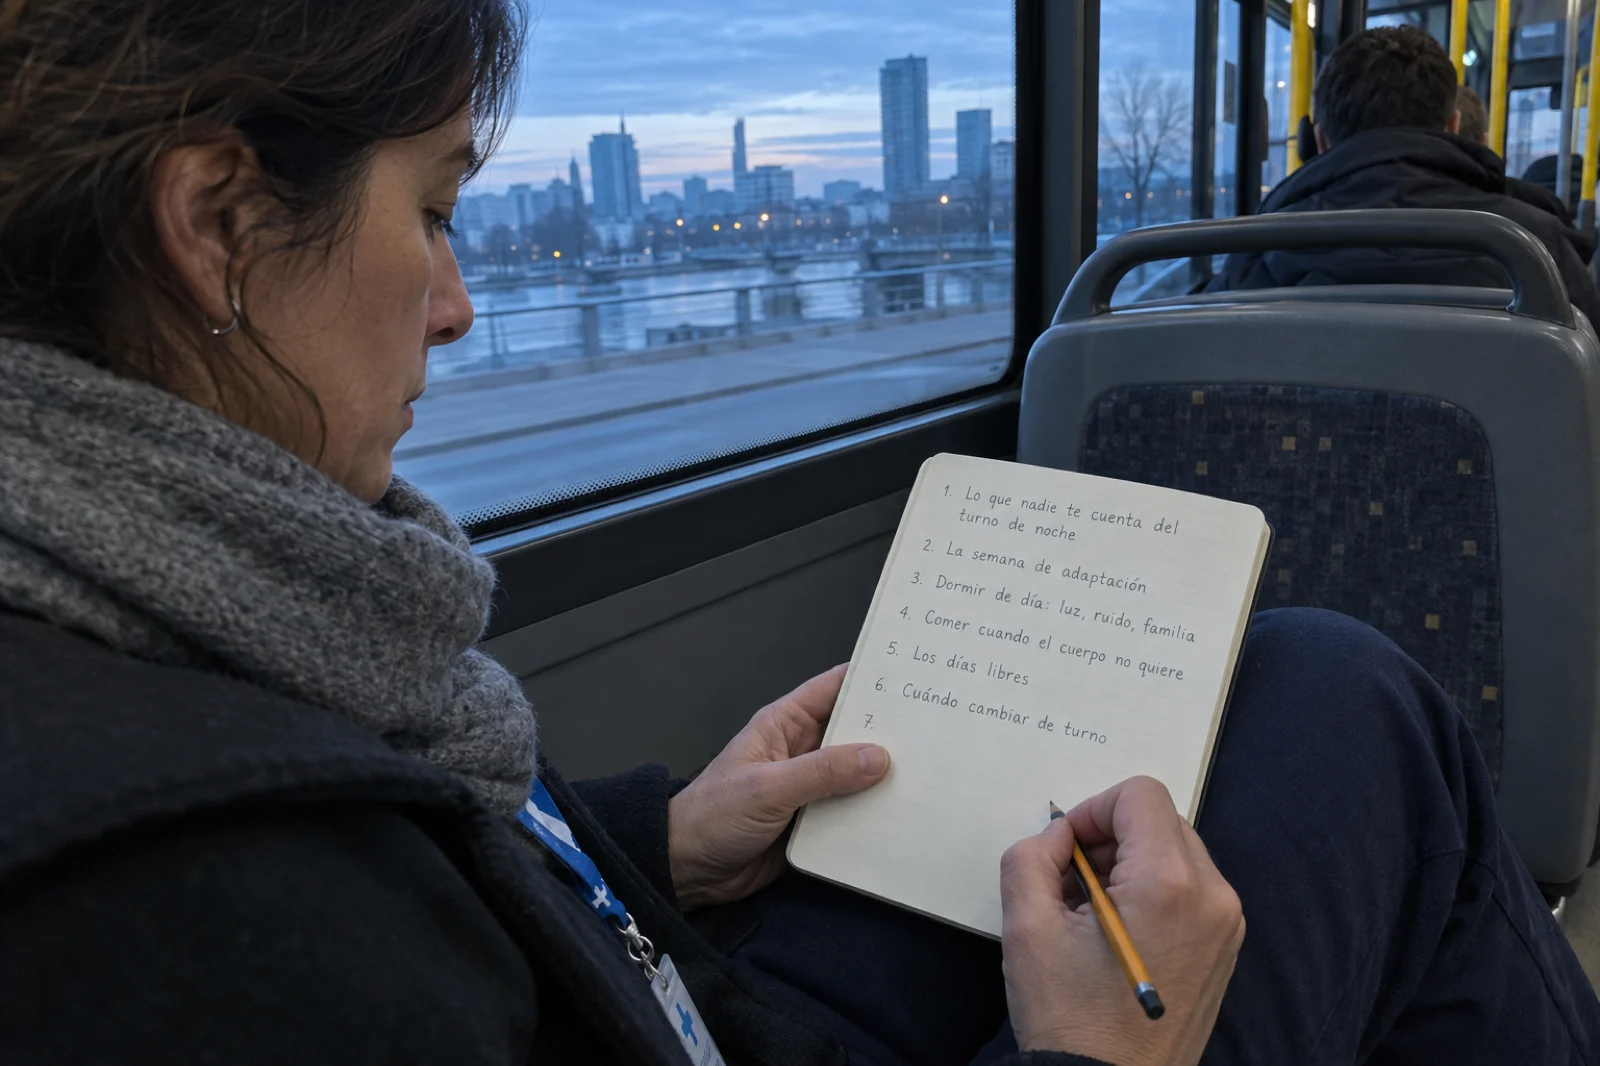 1. Lo que nadie te cuenta del
turno de noche
2. La semana de adaptación
3. Dormir de día: luz, ruido, familia
4. Comer cuando el cuerpo no quiere
5. Los días libres
6. Cuándo cambiar de turno
7.